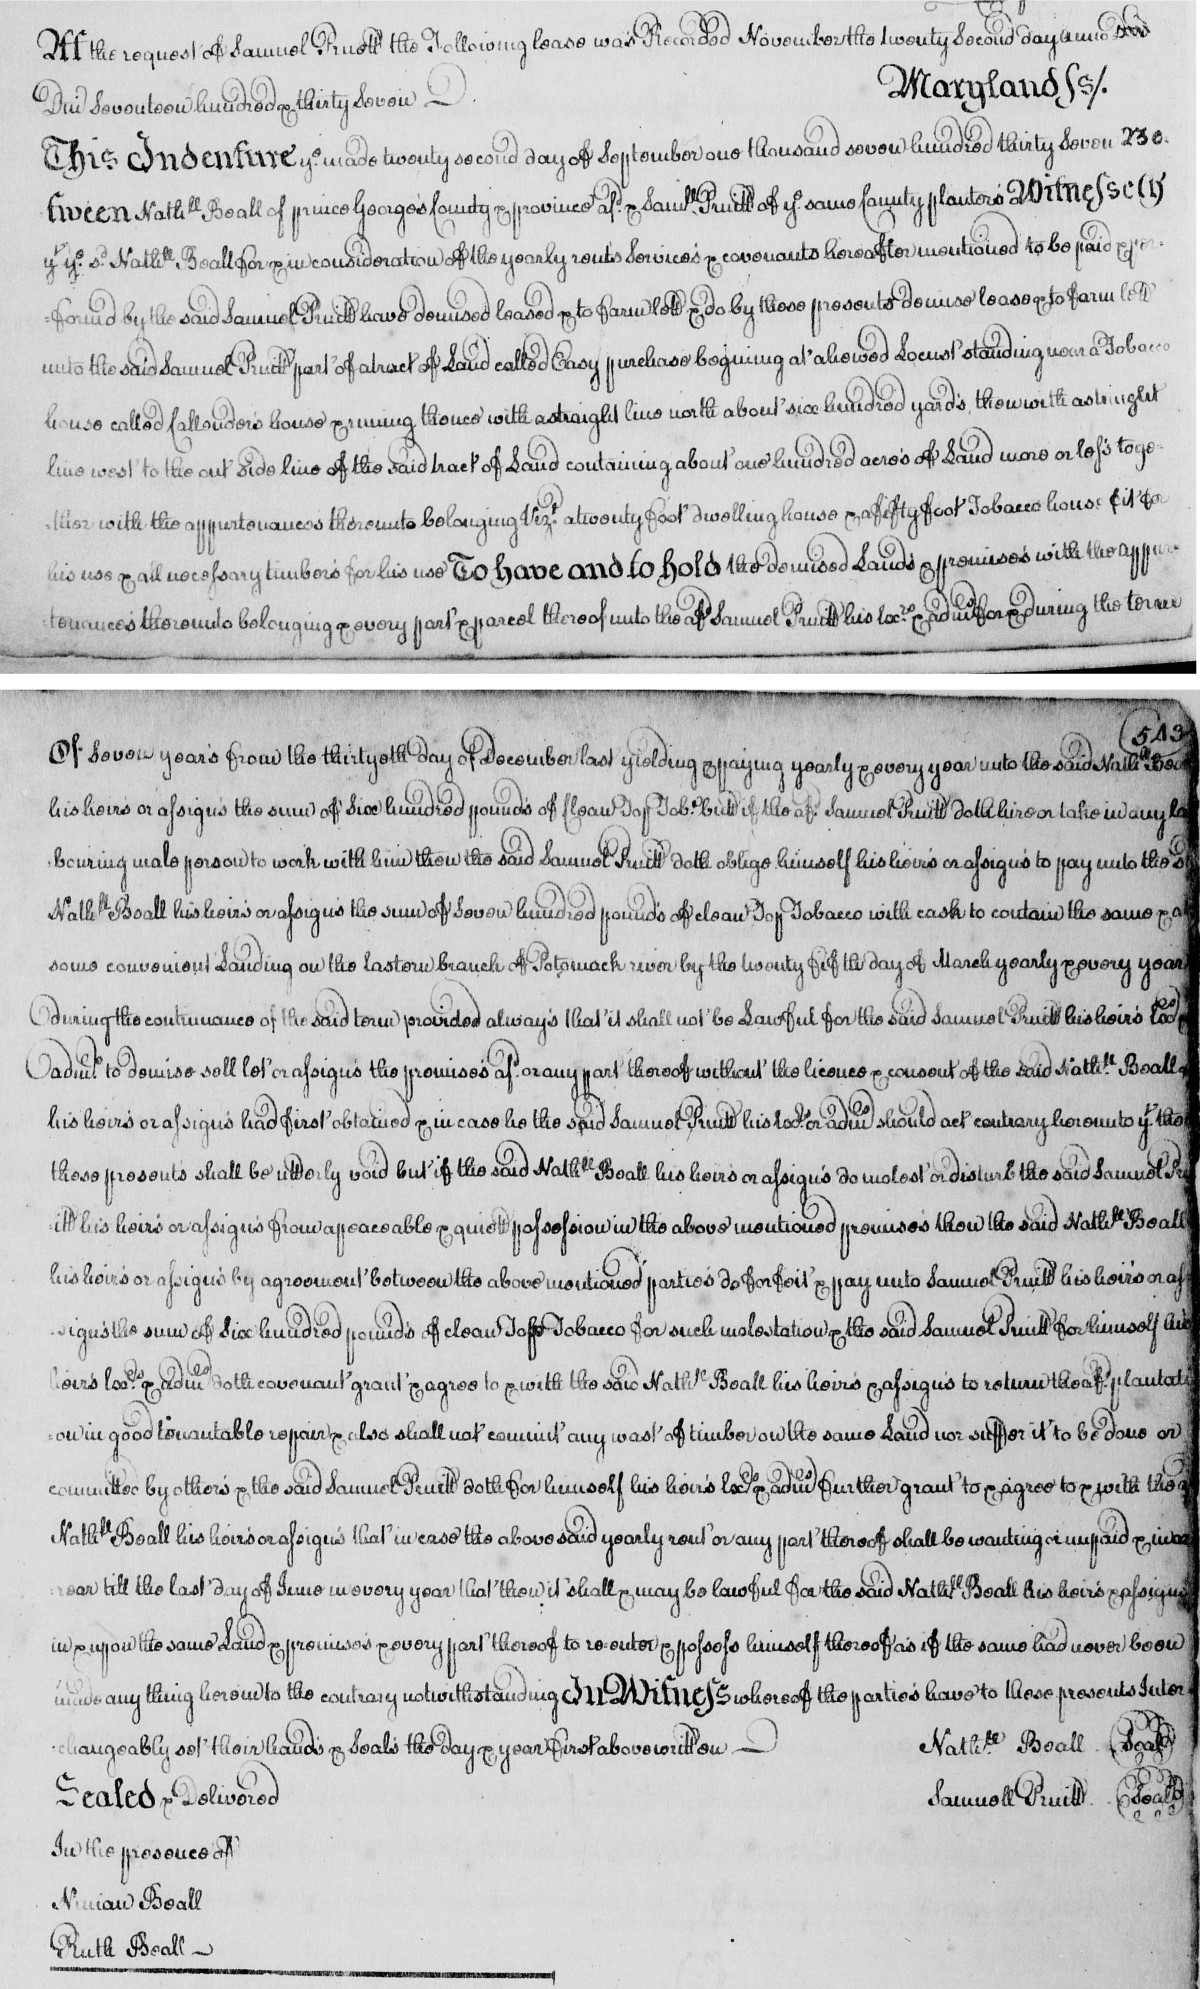 Att the request of Samuel Pruitt the Following lease was Recorded November the twenty Second day anno
Dni Seventeen hundred & thirty Seven
Maryland Ss/.
This Indenture ye. made twenty second day of September one thousand seven hundred thirty Seven Be-
tween Nathll Beall of prince George's County & province afd. & Samll. Pruitt of ye. same County planters Witnesseth
yt. ye. sd. Nathll. Beall for & in consideration of the yearly rents Services & covenants hereafter mentioned to be paid & per-
=formd by the said Samuel Pruitt have demised leased & to farm lett & do by these presents demise lease & to farm lett
unto the said Samuel Pruitt part of a tract of Land called Easy purchase begining at a hewed Locust standing near a Tobacco
house called Callender's house & runing thence with a straight line north about six hundred yards, then with a straight
line west to the out side line of the said tract of Land containing about one hundred acres of Land more or less toge-
-ther with the appurtenances thereunto belonging Vizt. a twenty foot dwelling house & a fifty foot Tobacco house fit for
his use & all necessary timbers for his use To have and to hold the demised Lands & premises with the appur-
-tenances thereunto belonging & every part & parcel thereof unto the afd Samuel Pruitt his Exrs. & admrs for & during the terme
543
Of Seven years from the thirtyeth day of December last yielding & paying yearly & every year unto the said Nathll Beall
his heirs or assigns the sum of Six hundred pounds of Clean Top Tobo. but if the afd. Samuel Pruitt doth hire or take in any la
-bouring male person to work with him then the said Samuel Pruitt doth oblige himself his heirs or assigns to pay unto the sd
Nathll Beall his heirs or assigns the sum of Seven hundred pounds of clean Top Tobacco with cask to contain the same & at
some convenient Landing on the Eastern branch of Potomack river by the twenty fifth day of March yearly & every year
during the continuance of the said term provided always that it shall not be Lawful for the said Samuel Pruitt his heirs Exrs
admrs. to demise sell let or assigns the premises afd. or any part thereof without the licence & consent of the said Nathll. Beall
his heirs or assigns had first obtained & in case he the said Samuel Pruitt his Exrs. or admrs should act contrary hereunto yt. then
these presents shall be utterly void but if the said Nathll Beall his heirs or assigns do molest or disturb the said Samuel Pru
itt his heirs or assigns from a peaceable & quiett possession in the above mentioned premises then the said Nathll Beall
his heirs or assigns by agreement between the above mentioned parties do forfeit & pay unto Samuel Pruitt his heirs or as
-signs the sum of Six hundred pounds of clean Topp Tobacco for such molestation & the said Samuel Pruitt for himself his
heirs Exrs. & admrs doth covenant grant & agree to & with the said Nathll Beall his heirs & assigns to return the afd. plantati
=on in good tenantable repair & also shall not commit any wast of timber on the same Land nor suffer it to be done or
committed by others & the said Samuel Pruitt doth for himself his heirs Exrs. & admrs further grant to & agree to & with the sd
Nathll Beall his heirs or assigns that in case the above said yearly rent or any part thereof shall be wanting or unpaid & in ar
-rear till the last day of June in every year that then it shall & may be lawful for the said Nathll Beall his heirs & assigns
in & upon the same Land & premises & every part thereof to re-enter & possess himself thereof as if the same had never been
made any thing herein to the contrary notwithstanding In Witness whereof the parties have to these presents Inter
-changeably set their hands & Seals the day & year first above written
Nathll Beall Seal
Sealed & Delivered
Samuell Pruitt Seal
In the presence of
Ninian Beall
Ruth Beall